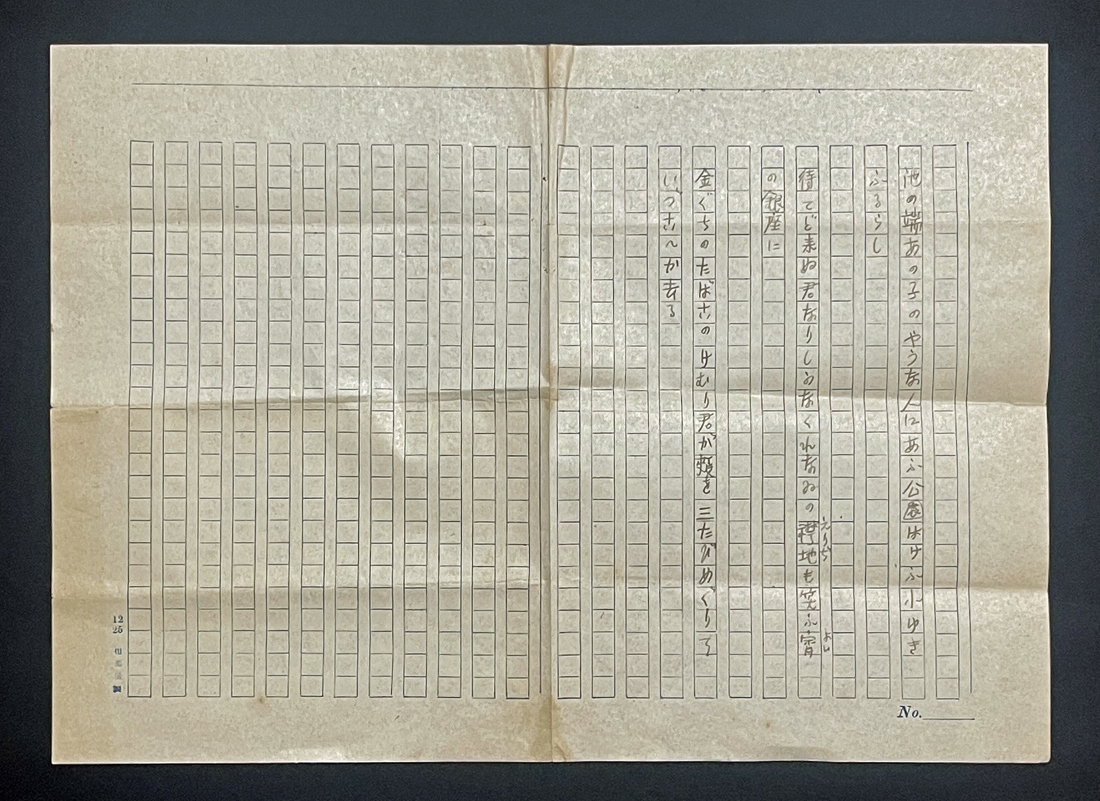 池の端あの子のやうな人にあふ公園はけふ小ゆき
ふるらし
待てど来ぬ君なりしかなくれなゐの襟地も笑ふ宵
えりぢ
よひ
の銀座に
金ぐちのたばこのけむり君が頬を三たびめぐりて
いづこへか去る
No.
12
25